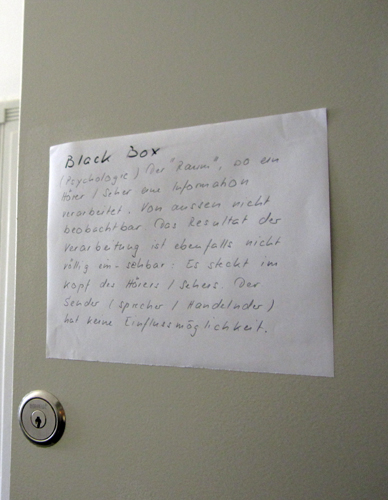 Black Box
(Psychologie) Der "Raum", wo ein
Hörer / Seher eine Information
verarbeitet. Von aussen nicht
beobachtbar Das Resultat der
Verarbeitung ist ebenfalls nicht
völlig ein-sehbar: Es steckt im
Kopf des Hörers / Sehers. Der
Sender (Sprecher / Handelnder)
hat keine Einflussmöglichkeit.